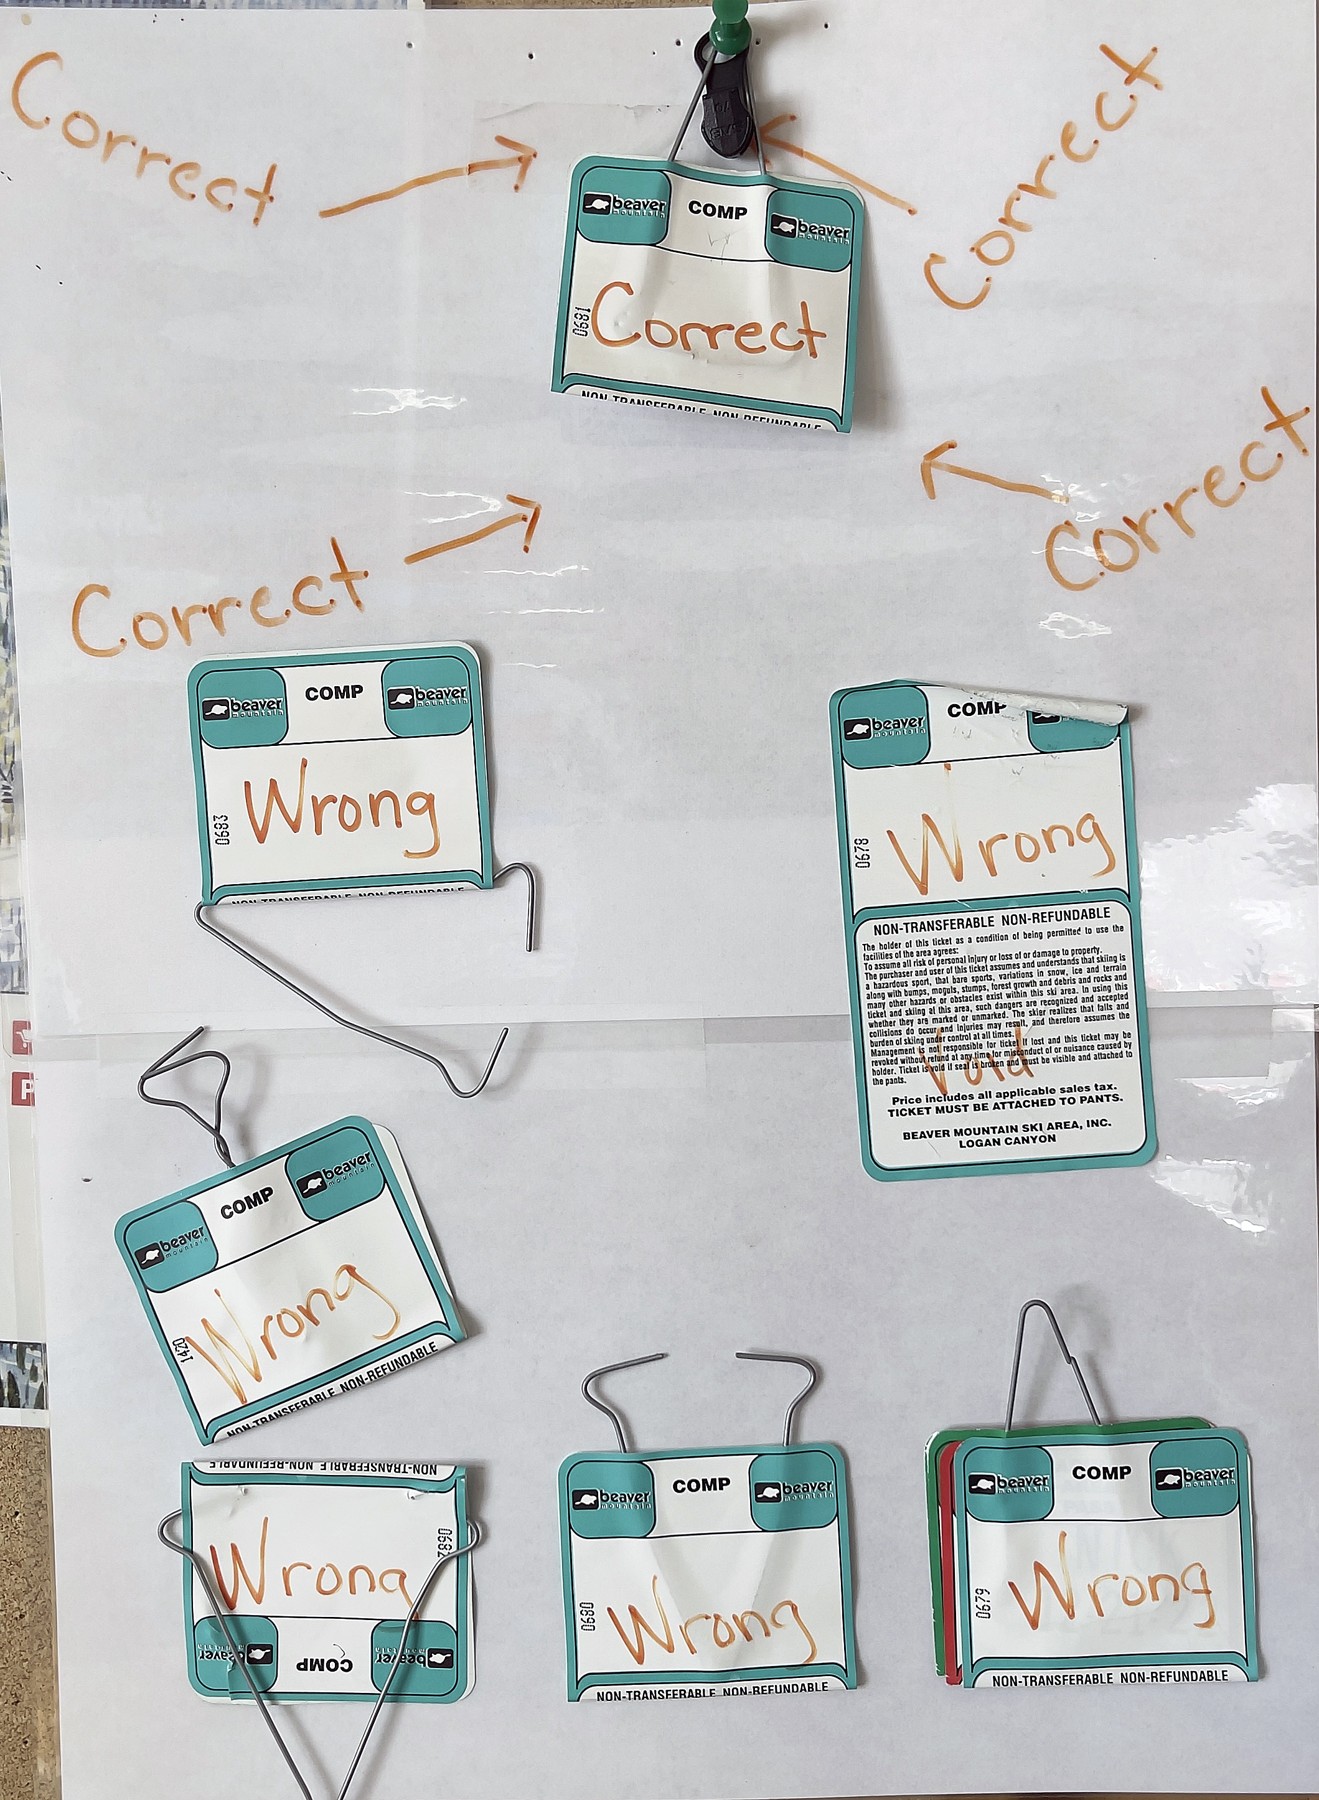 Correct
Correct
beaver mountain
COMP
beaver mountain
0681
Correct
NON-TRANSFERABLE NON-REFUNDABLE
Correct
Correct
beaver mountain
COMP
beaver mountain
0683
Wrong
NON-TRANSFERABLE NON-REFUNDABLE
beaver mountain
COMP
0678
Wrong
NON-TRANSFERABLE NON-REFUNDABLE
The holder of this ticket as a condition of being permitted to use the
facilities of the area agrees:
To assume all risk of personal injury or loss of or damage to property.
The purchaser and user of this ticket assumes and understands that skiing is
a hazardous sport, that bare sports, variations in snow, ice and terrain
along with bumps, moguls, stumps, forest growth and debris and rocks and
many other hazards or obstacles exist within this ski area. In using this
ticket and skiing at this area, such dangers are recognized and accepted
whether they are marked or unmarked. The skier realizes that falls and
collisions do occur and injuries may result, and therefore assumes the
burden of skiing under control at all times.
Management is not responsible for ticket if lost and this ticket may be
revoked without refund at any time for misconduct of or nuisance caused by
holder. Ticket is void if seal is broken and must be visible and attached to
the pants.
Void
Price includes all applicable sales tax.
TICKET MUST BE ATTACHED TO PANTS.
BEAVER MOUNTAIN SKI AREA, INC.
LOGAN CANYON
beaver mountain
COMP
beaver mountain
1420
Wrong
NON-TRANSFERABLE NON-REFUNDABLE
NON-TRANSFERABLE NON-REFUNDABLE
0682
Wrong
beaver mountain
COMP
beaver mountain
beaver mountain
COMP
beaver mountain
0680
Wrong
NON-TRANSFERABLE NON-REFUNDABLE
beaver mountain
COMP
beaver mountain
0679
Wrong
NON-TRANSFERABLE NON-REFUNDABLE